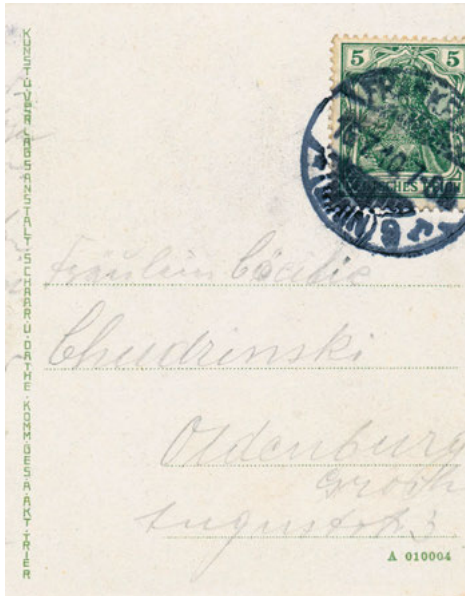 KUNST-U.VERLAGSANSTALT·SCHAAR·U·DATHE·KOMM.GES.A.AKT·TRIER
5 5
DEUTSCHES REICH
Fräulein Cäcilie
Chudzinski
Oldenburg
Auguststr. 3.
A 010004